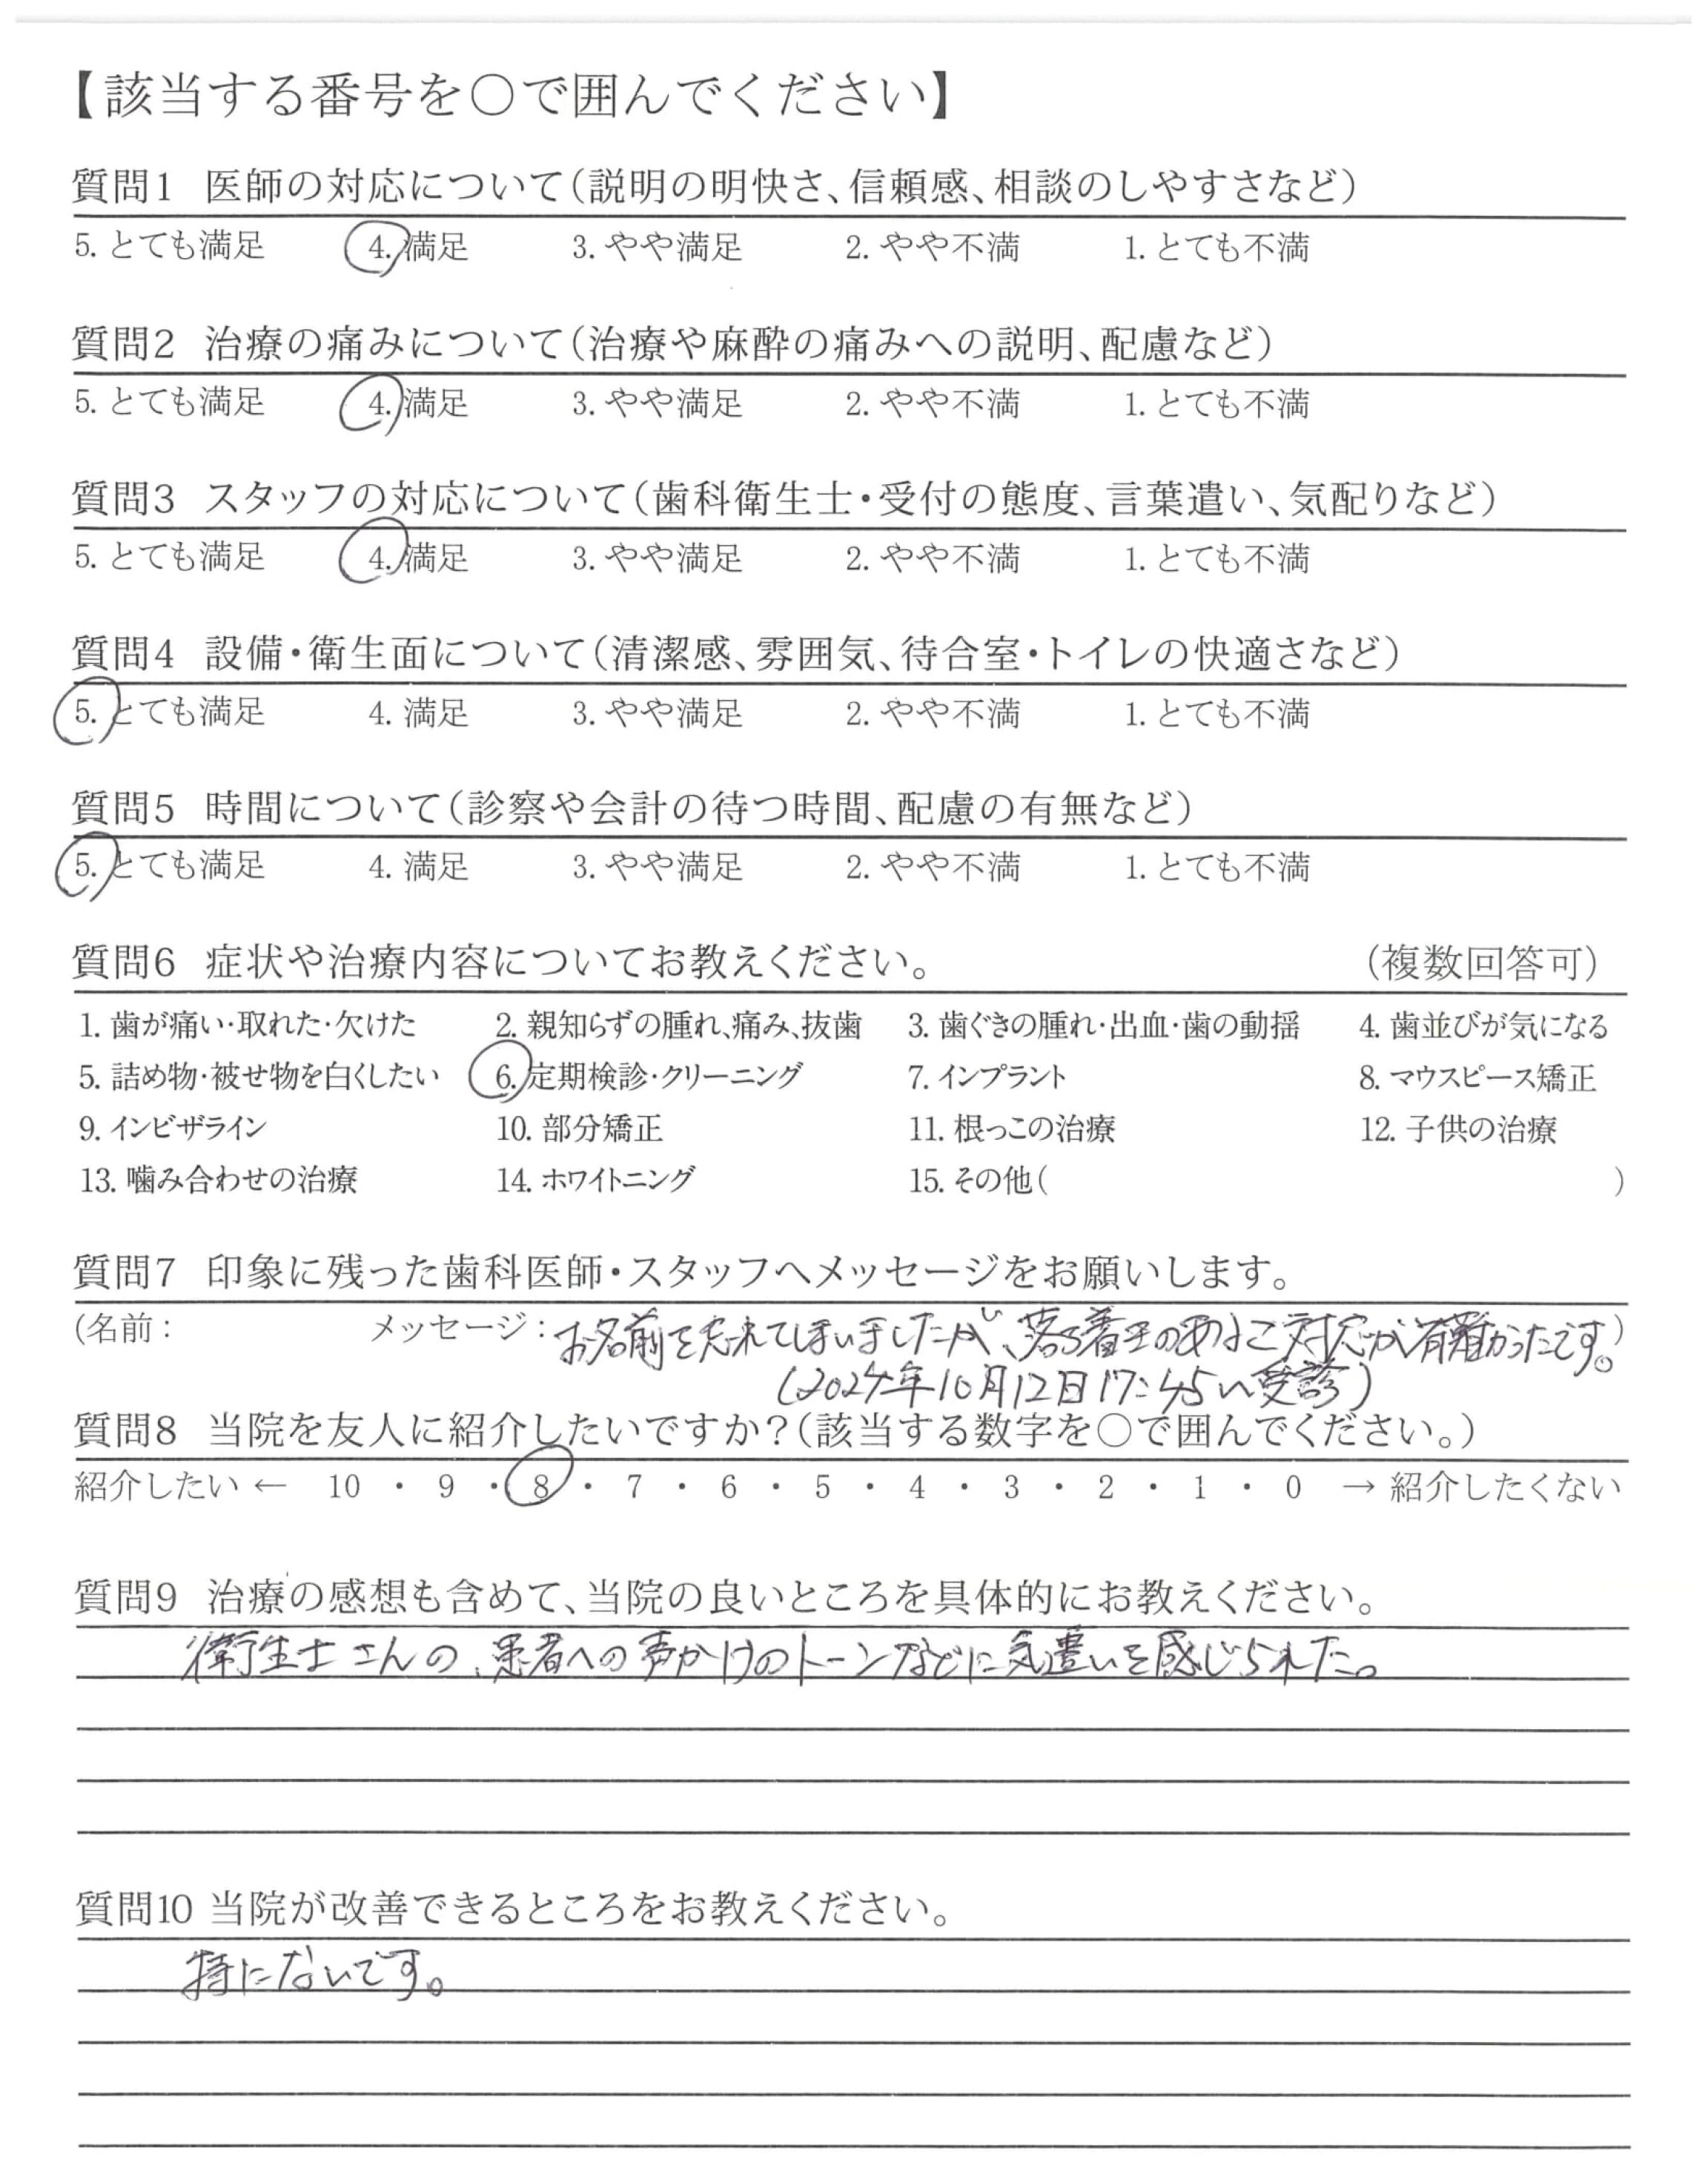 【該当する番号を○で囲んでください】
質問1 医師の対応について（説明の明快さ、信頼感、相談のしやすさなど）
5. とても満足 4. 満足 3. やや満足 2. やや不満 1. とても不満
質問2 治療の痛みについて（治療や麻酔の痛みへの説明、配慮など）
5. とても満足 4. 満足 3. やや満足 2. やや不満 1. とても不満
質問3 スタッフの対応について（歯科衛生士・受付の態度、言葉遣い、気配りなど）
5. とても満足 4. 満足 3. やや満足 2. やや不満 1. とても不満
質問4 設備・衛生面について（清潔感、雰囲気、待合室・トイレの快適さなど）
5. とても満足 4. 満足 3. やや満足 2. やや不満 1. とても不満
質問5 時間について（診察や会計の待つ時間、配慮の有無など）
5. とても満足 4. 満足 3. やや満足 2. やや不満 1. とても不満
質問6 症状や治療内容についてお教えください。 （複数回答可）
1. 歯が痛い・取れた・欠けた 2. 親知らずの腫れ、痛み、抜歯 3. 歯ぐきの腫れ・出血・歯の動揺 4. 歯並びが気になる
5. 詰め物・被せ物を白くしたい 6. 定期検診・クリーニング 7. インプラント 8. マウスピース矯正
9. インビザライン 10. 部分矯正 11. 根っこの治療 12. 子供の治療
13. 噛み合わせの治療 14. ホワイトニング 15. その他（ ）
質問7 印象に残った歯科医師・スタッフへメッセージをお願いします。
（名前： メッセージ：お名前を忘れてしまいましたが、落ち着きのあるご対応が有難かったです。）
（2024年10月12日17:45〜受診）
質問8 当院を友人に紹介したいですか？（該当する数字を○で囲んでください。）
紹介したい ← 10 ・ 9 ・ 8 ・ 7 ・ 6 ・ 5 ・ 4 ・ 3 ・ 2 ・ 1 ・ 0 → 紹介したくない
質問9 治療の感想も含めて、当院の良いところを具体的にお教えください。
衛生士さんの、患者への声かけのトーンなどに気遣いを感じられた。
質問10 当院が改善できるところをお教えください。
特にないです。